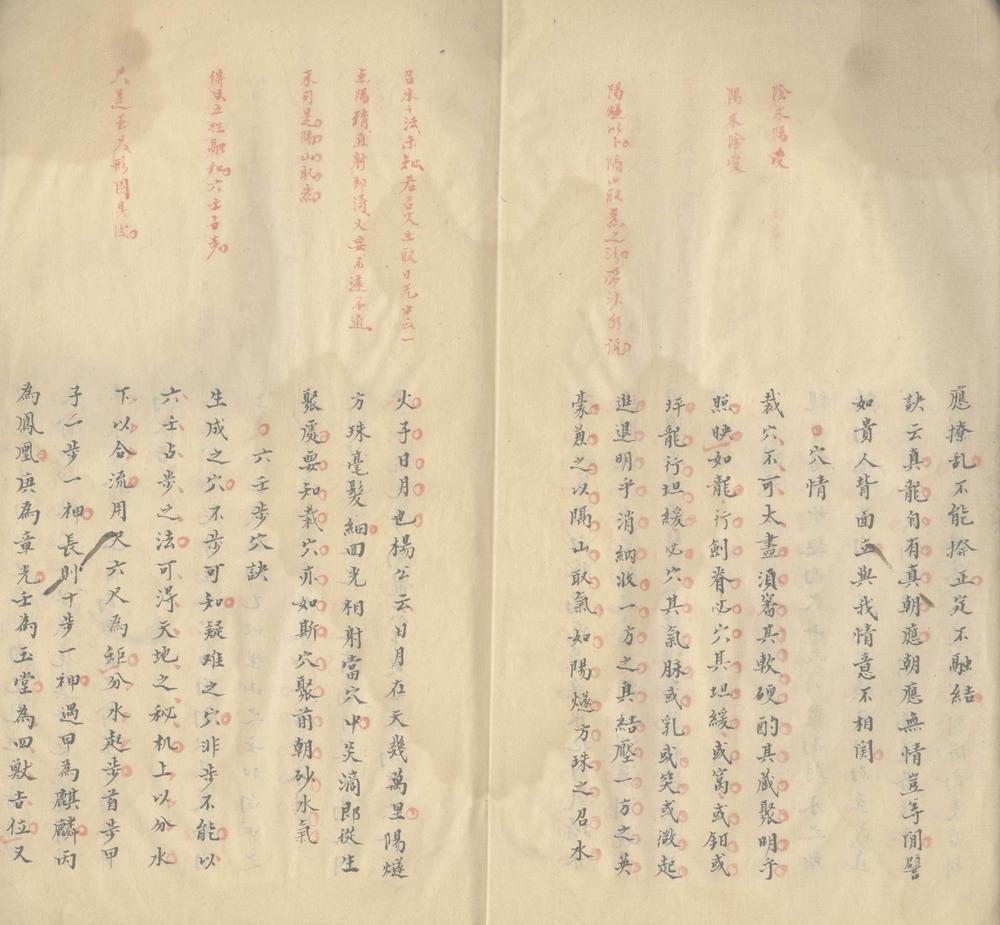 陰來陽受
陽來陰受
陽燧以下隔山取氣之法
應撩乱不能捺正定不融結
訣云真龍自有真朝應朝應無情豈等閒譬
如貴人背面立與我情意不相関
穴情
裁穴不可太盡須審其軟硬酌其蔵聚明乎
照映如龍行劍脊必穴其坦緩或窩或鉗或
坪龍行坦緩必穴其氣脉或乳或突或微起
進退明乎消納收一方之真結壓一方之英
豪兼之以隔山取氣如陽燧方珠之召水
召水之法
点陽精直射即淂火要不遠不近
六壬占步
火子日月也楊公云日月在天幾萬里陽燧
方珠毫髮細回光相射當穴中炎滴即從生
聚處要知栽穴亦如斯穴聚前朝砂水氣
六壬步穴訣
生成之穴不步可知疑难之穴非步不能以
六壬占步之法可淂天地之秘机上以分水
下以合流用尺六尺為矩分水起步首步甲
子二步一神長則十步一神遇甲為麒麟丙
為鳳凰庚為章光壬為玉堂為四獸吉位又